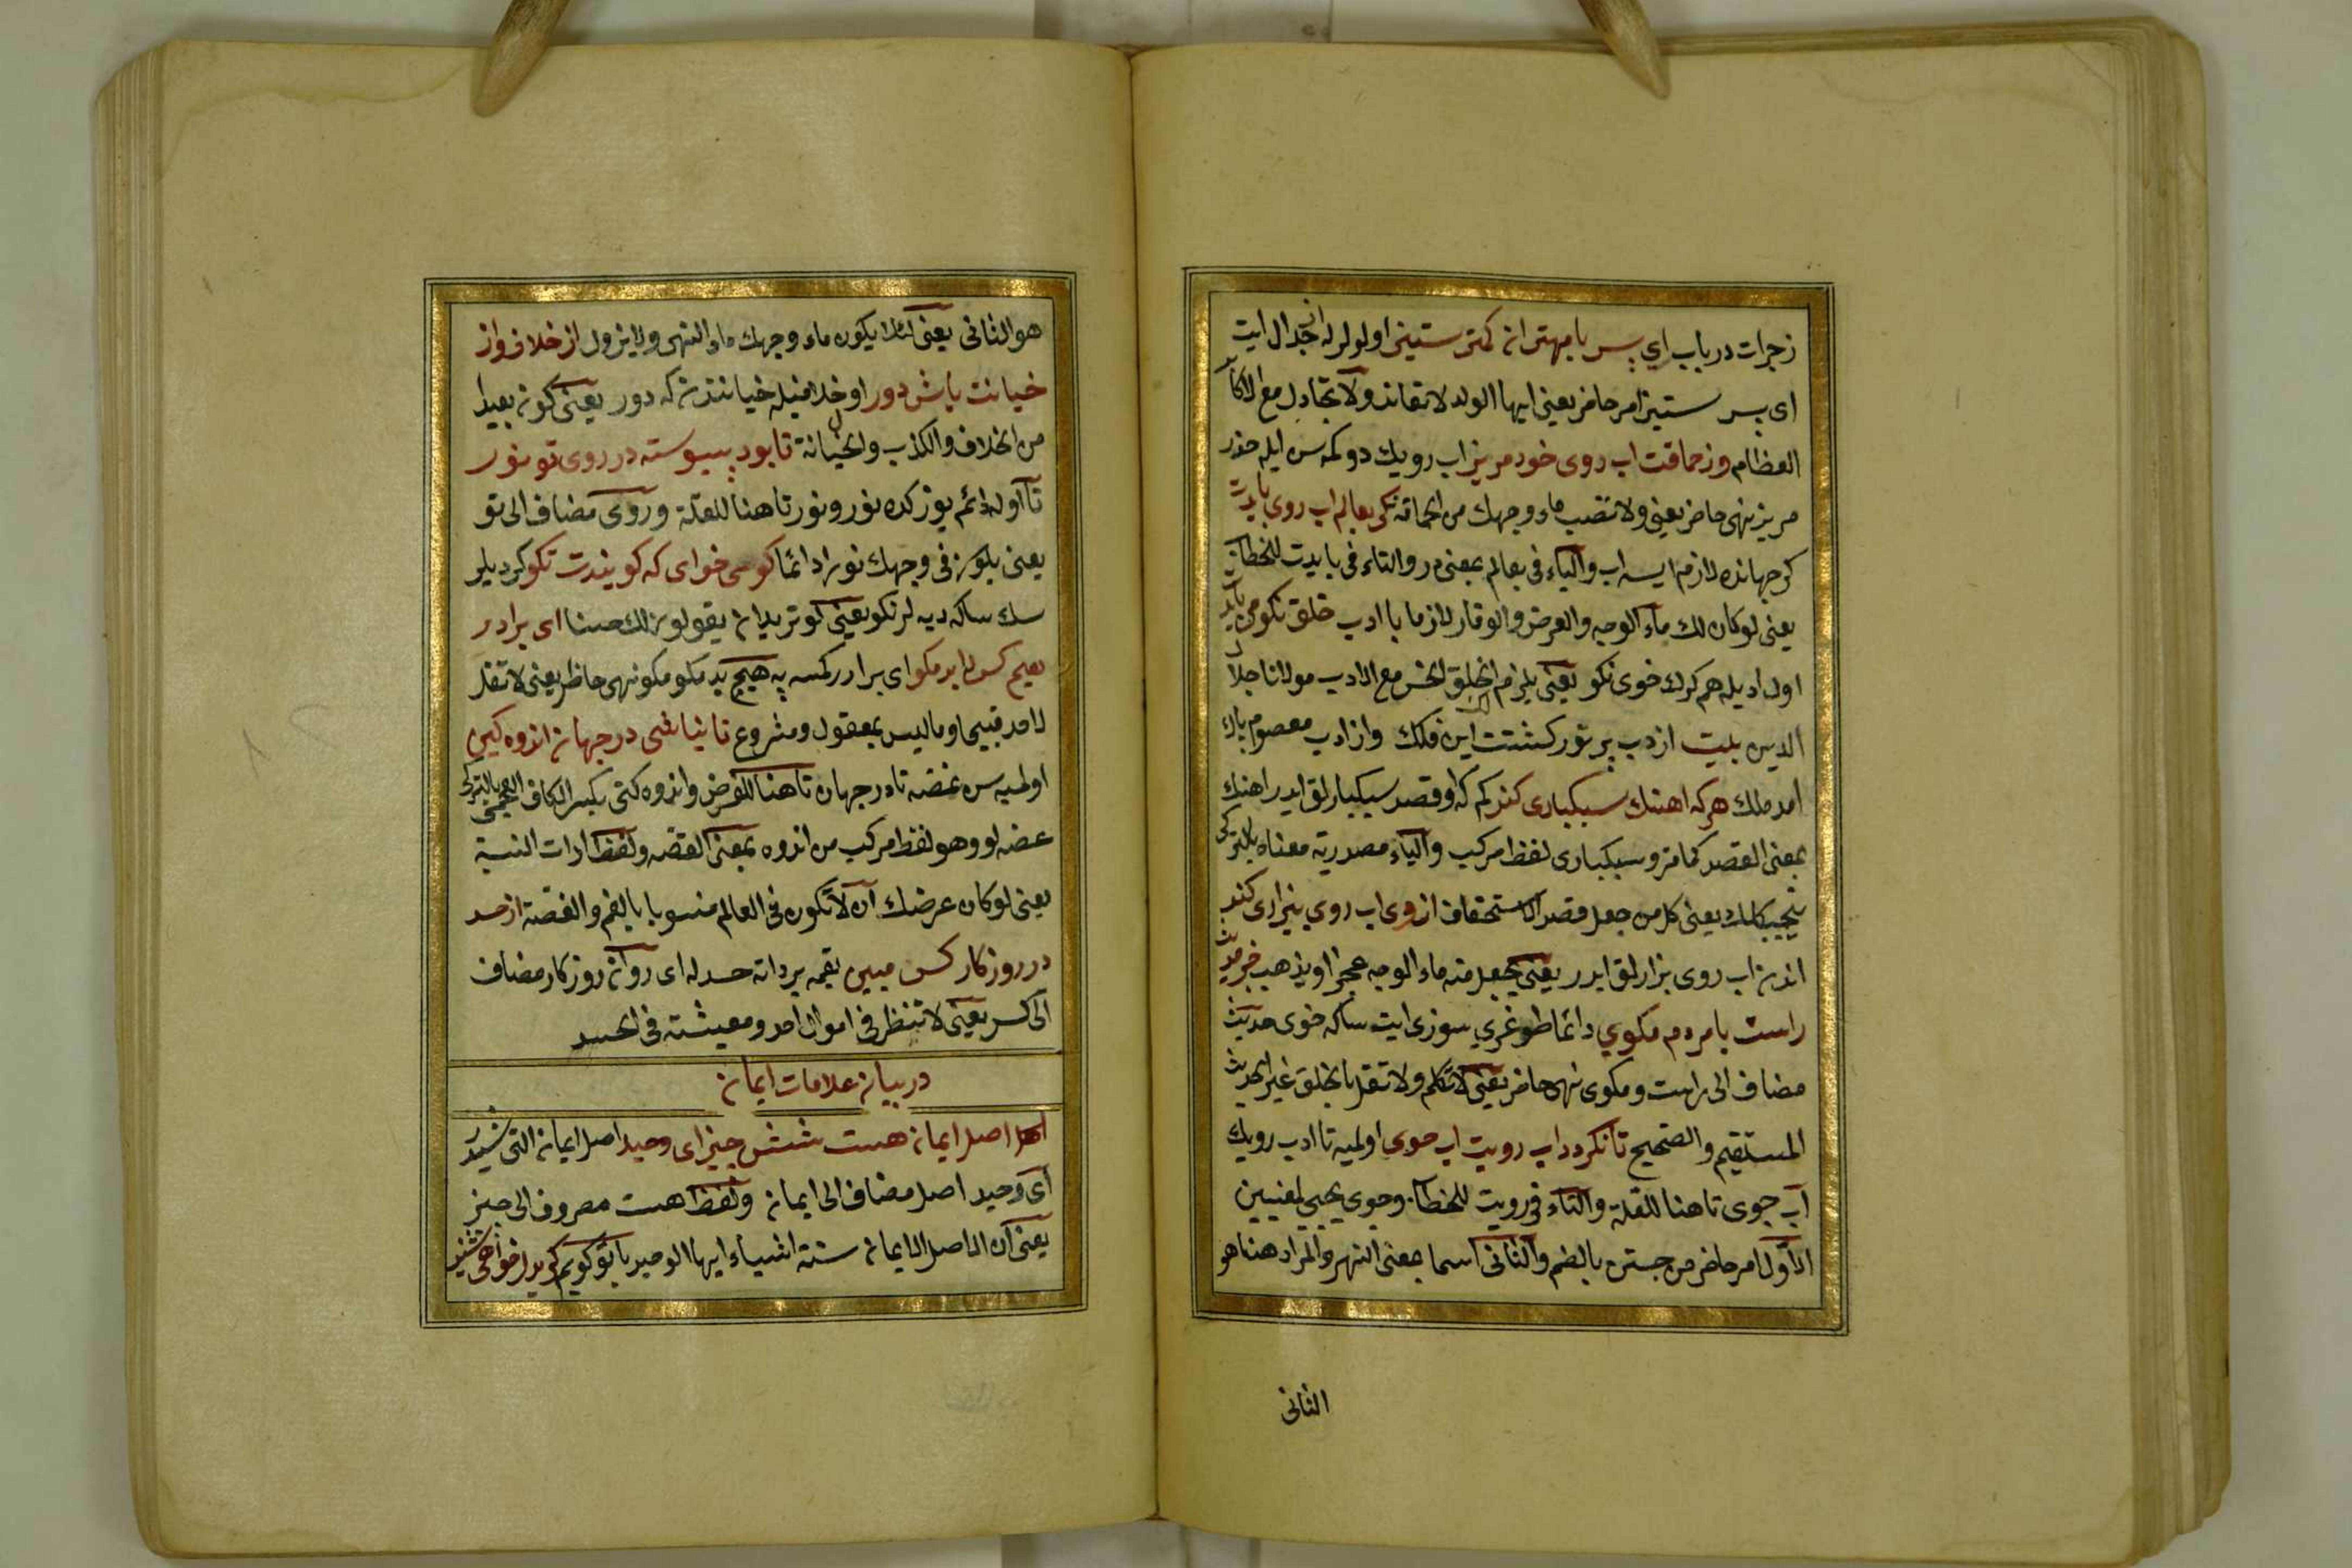 زجرات در باب اي پسر با مهتران كمتر ستيز اى اوغل اولولر له جدال ايت
اى پسر ستيز امر حاضر يعنى ايها الولد لا تعاند ولا تجادل مع الاكابر
العظام وز حماقت اب روى خود مريز اب رويك دوكمه سن ايله حذر
مريز نهى حاضر يعنى ولا تصب ماء وجهك من الحماقة كر بعالم اب روى بايدت
كر جهانده لازم ايسه اب والباء فى بعالم بمعنى در والتاء فى بايدت للخطاب
يعنى لو كان لك ماء الوجه والعرض والوقار لازما با ادب خلق نكو مى بايد
اول ادبله هم كرك خوى نكو يعنى يلزم الخلق الحسن مع الادب مولانا جلال
الدين بيت از ادب پر نور كشتت اين فلك وز ادب معصوم پاك
امد ملك هر كه اهنك سبكبارى كند كم كه او قصد سبكبارلق ايدر اهنك
بمعنى القصد كما مر وسبكبارى لفظ مركب والياء مصدرية معناه بالتركى
يعنى كل من جعل قصد الاستخفاف از وى اب روى بيزارى كند
اندن اب روى بزارلق ايدر يعنى يجعل منه ماء الوجه عجزا ويذهب جز حديث
راست با مردم مكوي دائما طوغري سوزى ايت ساكه خوى حديث
مضاف الى راست ومكوى نهى حاضر يعنى لا تكلم ولا تقل بالخلق غير الحديث
المستقيم والصحيح تا نكردد اب رويت اب جوى اولميه تا ادب رويك
آب جوى تا هنا للعلة والتاء فى رويت للخطاب وجوى يجيى لمعنيين
الاول امر حاضر من جستن بالضم والثانى اسما بمعنى النهر والمراد هنا هو
الثانى
هو الثانى يعنى لئلا يكون ماء وجهك ماء النهر ولا يزول از خلاف واز
خيانت باش دور او خلافيله خيانتدن كه دور يعنى كون بعيدا
من الخلاف والكذب والخيانة تا بود پيوسته در روى تو نور
تا اوله دائم يوزكده نور ونور تا هنا للعلة وروى مضاف الى تو
يعنى يكون فى وجهك نورا دائما كر همى خواى كه كويندت نكو كر ديلر
سك ساكه ديه لر نكو يعنى لو تريد ان يقولون لك حسنا اى برادر
هيچ كس را بد مكو اى برادر كمسه يه هيچ بد مكو مكو نهى حاضر يعنى لا تقل
لاحد قبيحا وما ليس بمعقول ومشروع تا نباشى در جهان اندوه كين
اولميه سن غصه تا در جهان تا هنا للغرض واندوه كين بكسر الكاف العجمى بالتركى
غصه لو وهو لفظ مركب من اندوه بمعنى الغصه ولفظ ادات النسبة
يعنى لو كان عرضك ان لا تكون فى العالم منسوبا بالغم والغصة از حسد
در روزكار كس مبين بقمه برداته حسدله اى روان روزكار مضاف
الى كس يعنى لا تنظر فى اموال احد ومعيشته فى الحسد
در بيان علامات ايمان
اهل اصل ايمان هست شش چيز اى وحيد اصل ايمان التى شيدر
اى وحيد اصل مضاف الى ايمان ولفظ هست مصروف الى چيز
يعنى ان الاصل الايمان ستة اشياء ايها الوحيد با تو كويم